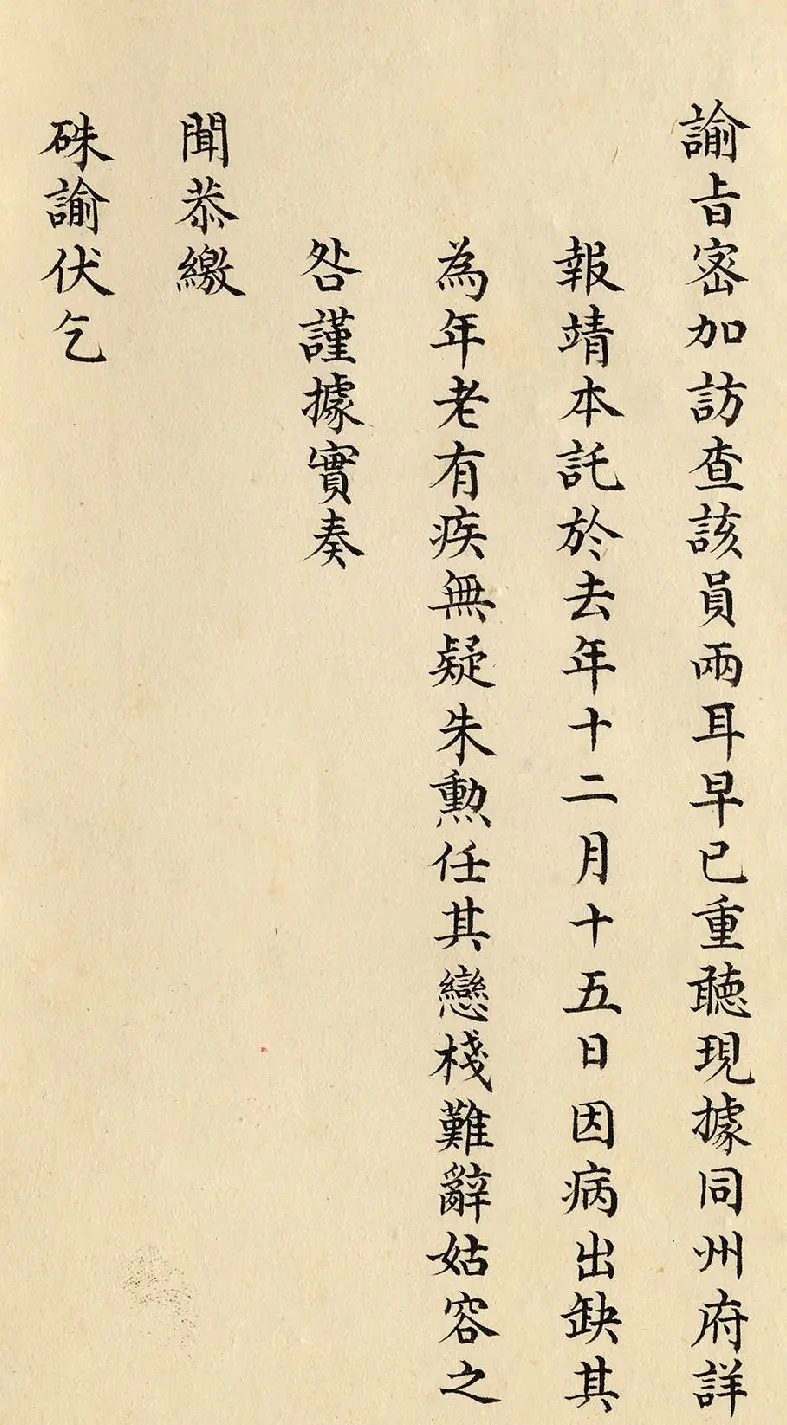 諭旨密加訪查該員兩耳早已重聽現據同州府詳
報靖本託於去年十二月十五日因病出缺其
為年老有疾無疑朱勲任其戀棧難辭姑容之
咎謹據實奏
聞恭繳
硃諭伏乞